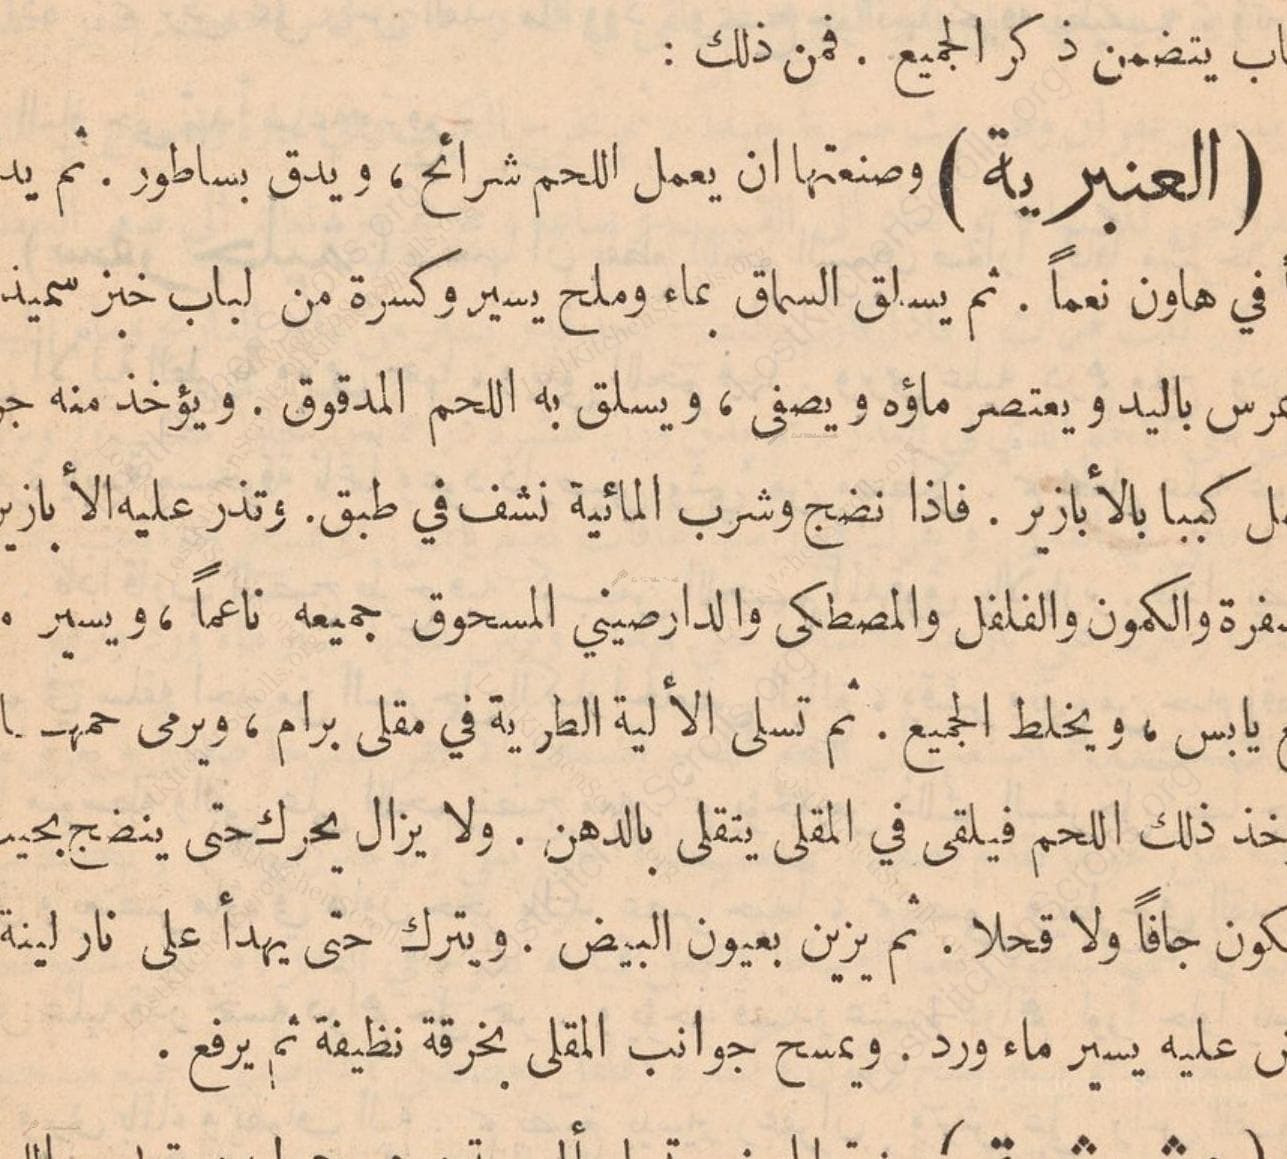 يتضمن ذكر الجميع . فمن ذلك :
(العنبرية) وصنعتها ان يعمل اللحم شرائح ، ويدق بساطور . ثم
في هاون نعماً . ثم يسلق السماق بماء وملح يسير وكسرة من لباب خبز سميذ
باليد ويعتصر ماؤه ويصفى ، ويسلق به اللحم المدقوق . ويؤخذ منه
كببا بالأبازير . فاذا نضج وشرب المائية نشف في طبق. وتذر عليه الأبازير
والكمون والفلفل والمصطكى والدارصيني المسحوق جميعه ناعماً ، ويسير
يابس ، ويخلط الجميع . ثم تسلى الألية الطرية في مقلى برام ، ويرمى
ذلك اللحم فيلقى في المقلى يتقلى بالدهن . ولا يزال يحرك حتى ينضج
جافاً ولا قحلا . ثم يزين بعيون البيض . ويترك حتى يهدأ على نار لينة
عليه يسير ماء ورد . ويمسح جوانب المقلى بخرقة نظيفة ثم يرفع .